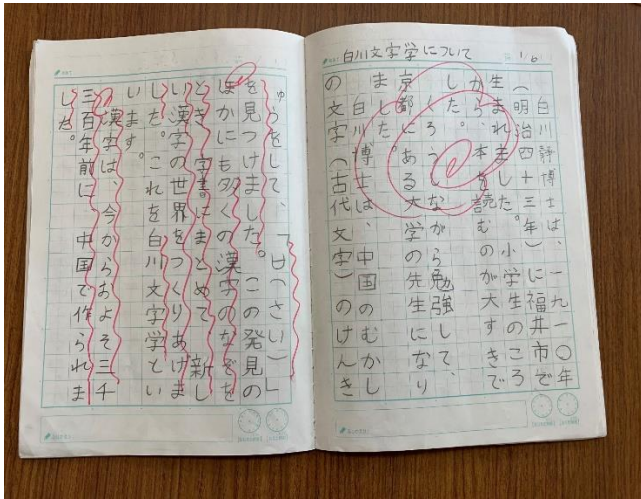 白川文字学について
1/6
白川静博士は、一九一〇年
(明治四十三年)に福井市で
生まれました。小学生のころ
から、本を読むのが大すきで
した。
くろうしながら勉強して、
京都にある大学の先生になり
ました。
白川博士は、中国のむかし
の文字(古代文字)のけんき
ゅうをして、「𠙵(さい)」
を見つけました。この発見の
ほかにも多くの漢字のなぞを
とき、字書にまとめて新し
い漢字の世界をつくりあげま
した。これを白川文字学とい
います。
漢字は、今からおよそ三千
三百年前に、中国で作られま
した。